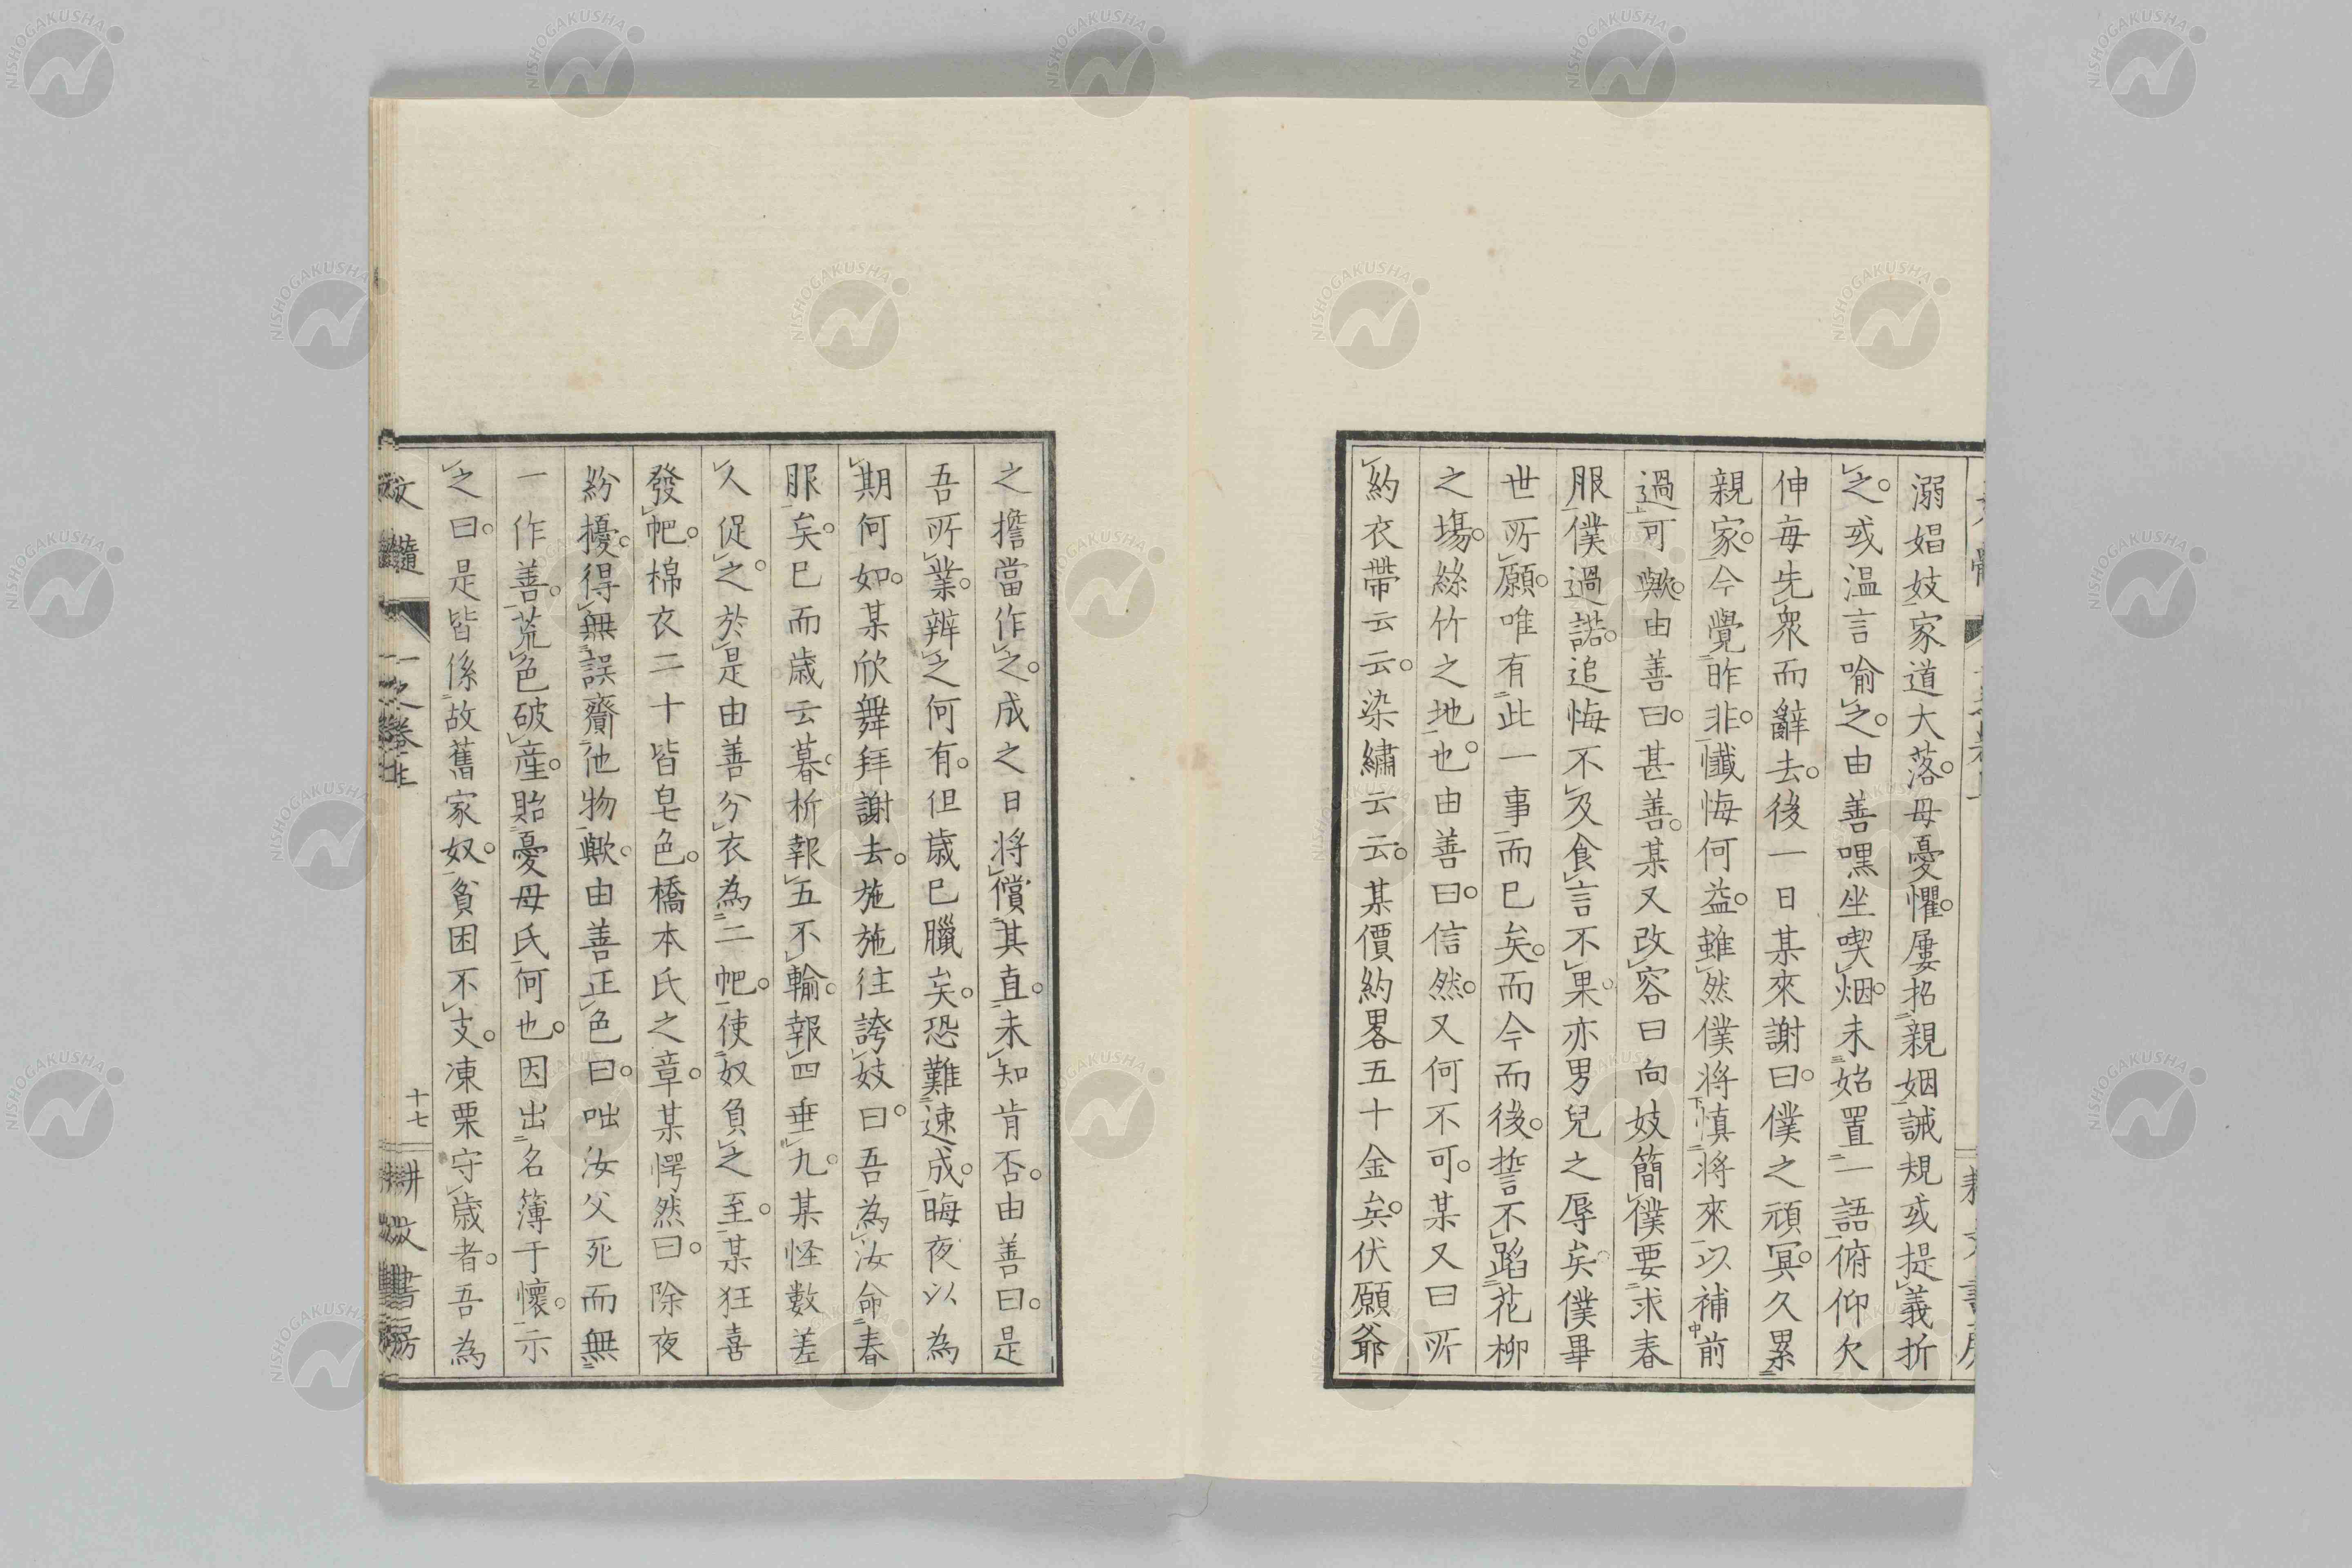 溺娼妓家道大落。母憂懼。屢招親姻誡規或提義折
之。或温言喻之。由善嘿坐喫烟。未始置一語俯仰欠
伸毎先衆而辭去。後一日某來謝曰。僕之頑冥。久累
親家。今覺昨非。懺悔何益。雖然僕將慎將來以補前
過可歟。由善曰。甚善。某又改容曰向妓簡僕要求春
服僕過諾。追悔不及食言不果。亦男兒之辱矣。僕畢
世所願。唯有此一事而已矣。而今而後。誓不蹈花柳
之塲。絲竹之地也。由善曰。信然。又何不可。某又曰所
約衣帶云云。染繡云云。某價約畧五十金矣。伏願爺
之擔當作之。成之日將償其直。未知肯否。由善曰。是
吾所業。辨之何有。但歳已臘矣。恐難速成。晦夜以為
期何如。某欣舞拜謝去。施施往誇妓曰。吾為汝命春
服矣。已而歳云暮。柝報五不輸。報四垂九。某怪數差
久促之。於是由善分衣為二帊。使奴負之至。某狂喜
發帊。棉衣二十皆皂色。橋本氏之章。某愕然曰。除夜
紛擾。得無誤齎他物歟。由善正色曰。咄汝父死而無
一作善。荒色破産。貽憂母氏何也。因出名簿于懷。示
之曰。是皆係故舊家奴。貧困不支。凍栗守歳者。吾為
文髓
一之巻上
十七
耕文書房
NISHOGAKUSHA